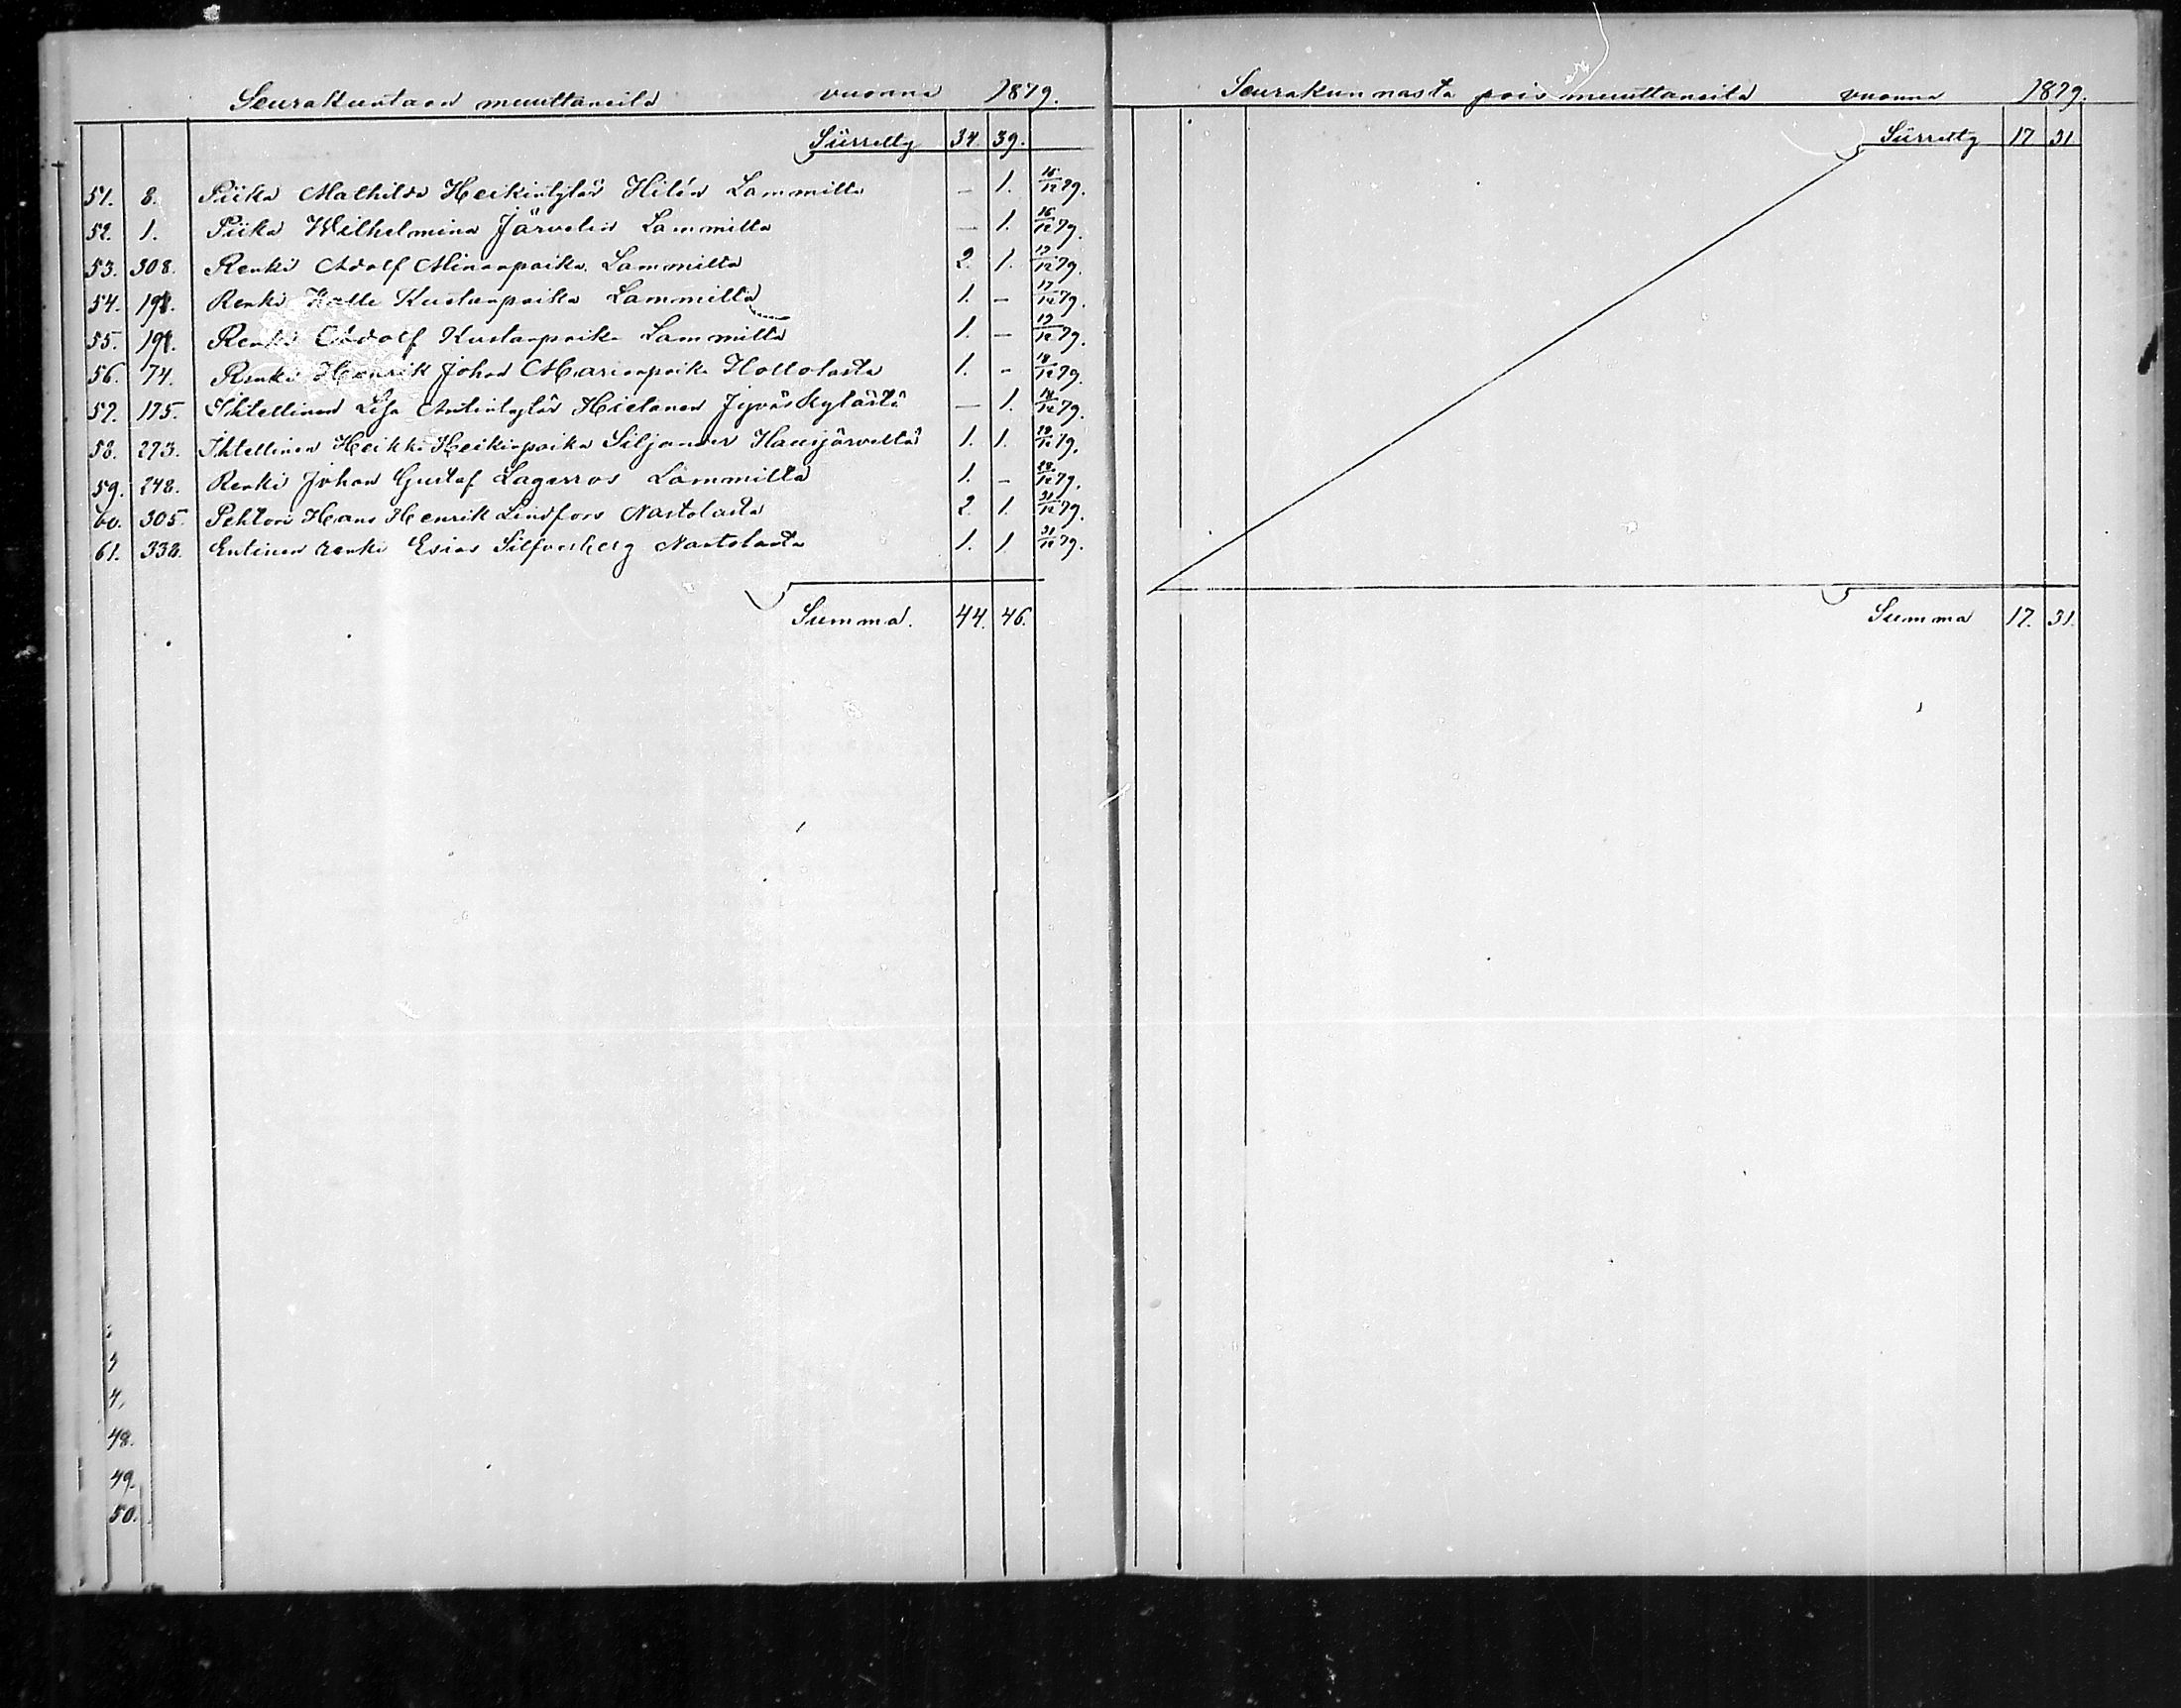 Seurakuntaan muuttaneita vuonna 1879.
Siirretty 34. 39.
51. 8. Piika Mathilda Heikintytär Hilén Lammilta — 1. 16/12 79.
52. 1. Piika Wilhelmina Järvelin Lammilta — 1. 16/12 79.
53. 308. Renki Adolf Minanpoika Lammilta 2. 1. 17/12 79.
54. 198. Renki Kalle Kustanpoika Lammilta 1. — 17/12 79.
55. 198. Renki Adolf Kustanpoika Lammilta 1. — 17/12 79.
56. 74. Renki Henrik Johan Marianpoika Hollolasta 1. — 18/12 79.
57. 175. Ihtellinen Lisa Antintytär Hietanen Jyväskylästä — 1. 14/12 79.
58. 273. Ihtellinen Heikki Heikinpoika Siljander Hausjärveltä 1. 1. 29/12 79.
59. 248. Renki Johan Gustaf Lagerros Lammilta 1. — 29/12 79.
60. 305. Pehtori Hans Henrik Lindfors Nastolasta 2. 1. 31/12 79.
61. 338. Entinen renki Esias Silfverberg Nastolasta 1. 1. 31/12 79.
Summa. 44. 46.
48.
49.
50.
Seurakunnasta pois muuttaneita vuonna 1879.
Siirretty 17 31
Summa 17. 31.